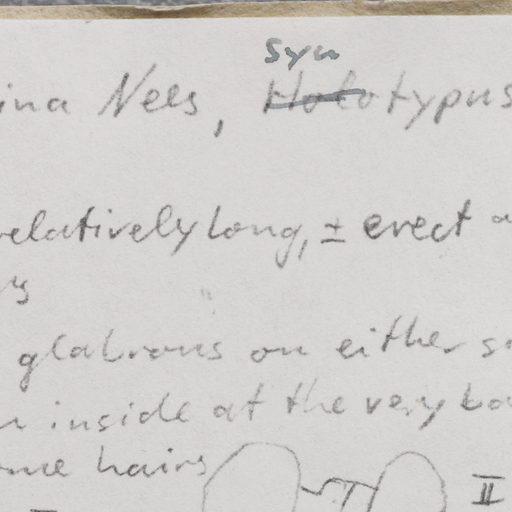 Syn
ina Nees, Holotypus
relatively long, ± erect
glabrous on either
inside at the very
hairs
II